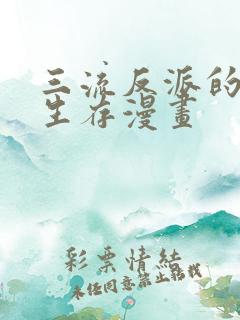 三流反派的
生存漫畫
彩票情結
未经同意禁止转载